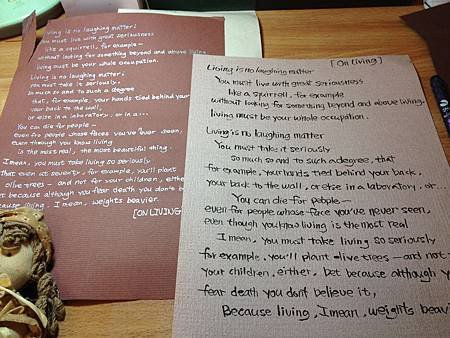 Living is no laughing matter:
you must live with great seriousness
like a squirrel, for example—
without looking for something beyond and above living
living must be your whole occupation.
Living is no laughing matter:
you must take it seriously
so much so and to such a degree
that, for example, your hands tied behind your
your back to the wall,
or else in a laboratory, or in a...
You can die for people—
even for people whose faces you've never seen,
even though you know living
is the most real, the most beautiful thing.
I mean, you must take living so seriously
that even at seventy, for example, you'll plant
olive trees— and not for your children, either
but because although you fear death you don't be
because living, I mean, weights heavier.
[ON LIVING
[On Living]
Living is no laughing matter
You must live with great seriousness
like a squirrel, for example
without looking for something beyond and above living,
living must be your whole occupation.
Living is no laughing matter
You must take it seriously
so much so and to such a degree, that
for example, your hands tied behind your back,
your back to the wall, or else in a laboratory, or...
You can die for people—
even for people whose face you've never seen,
even though you know living is the most real
I mean, you must take living so seriously
for example, you'll plant olive trees— and not
your children, either, but because although y
fear death you don't believe it,
Because living, I mean, weights heavi